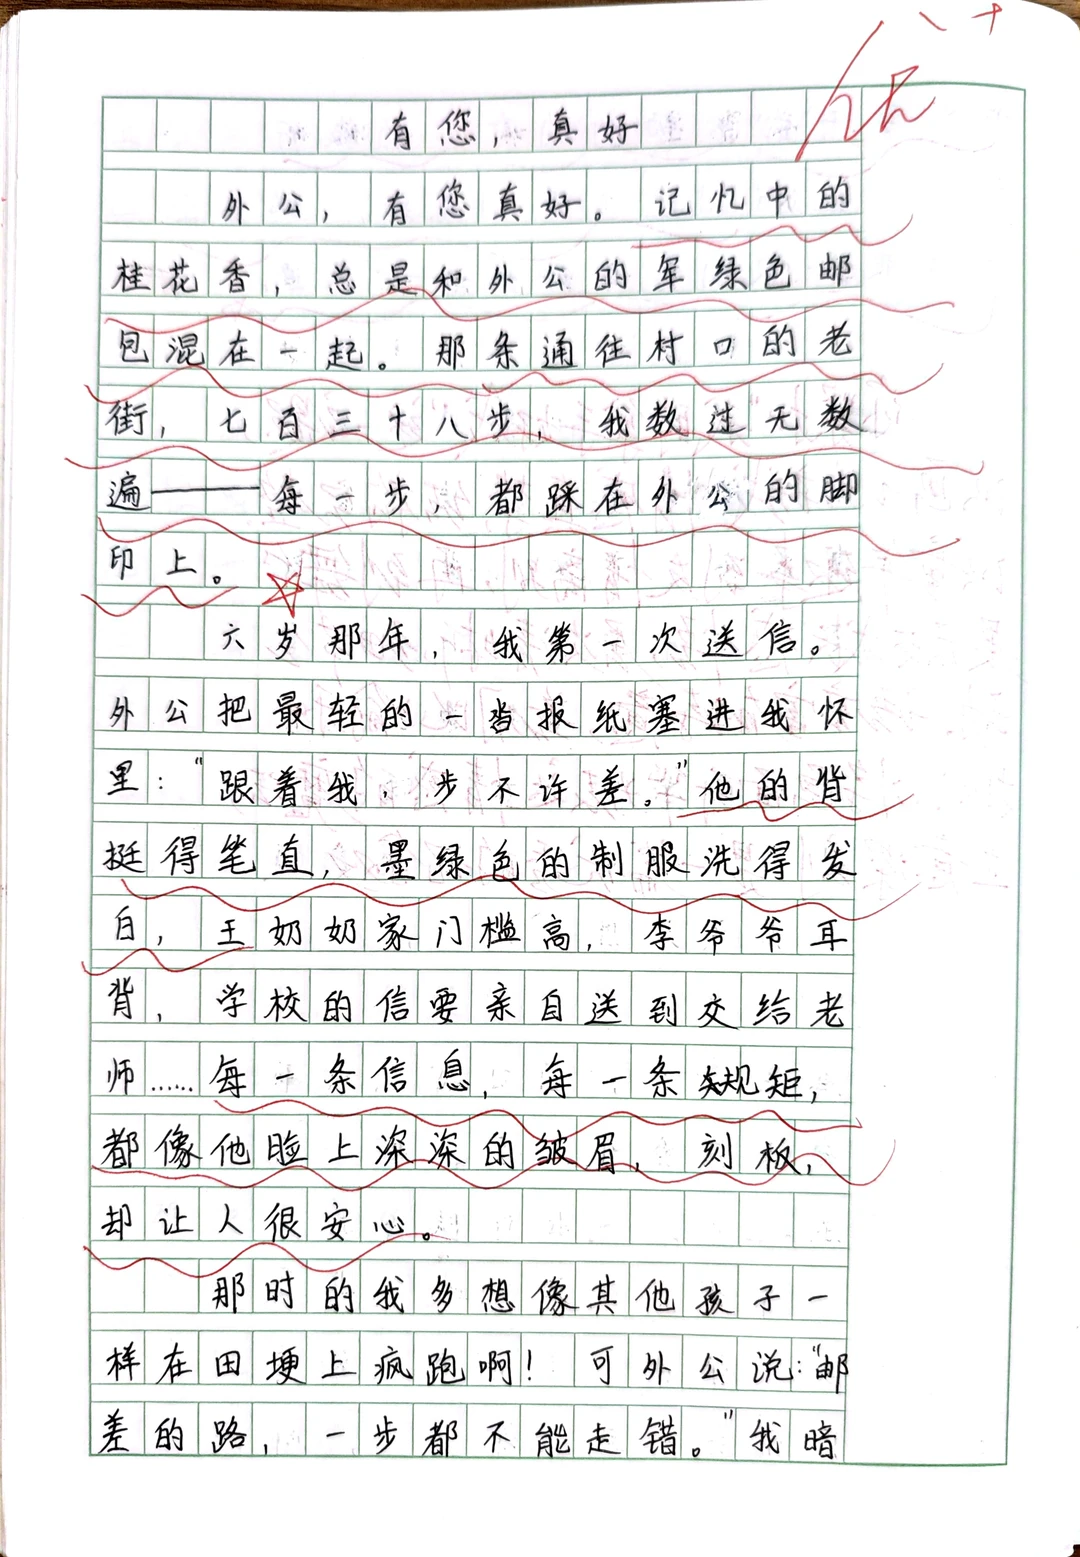 优
有您，真好
外公，有您真好。记忆中的
桂花香，总是和外公的军绿色邮
包混在一起。那条通往村口的老
街，七百三十八步，我数过无数
遍——每一步，都踩在外公的脚
印上。
六岁那年，我第一次送信。
外公把最轻的一沓报纸塞进我怀
里：“跟着我，步不许差。”他的背
挺得笔直，墨绿色的制服洗得发
白，王奶奶家门槛高，李爷爷耳
背，学校的信要亲自送到交给老
师……每一条信息，每一条规矩，
都像他脸上深深的皱眉，刻板，
却让人很安心。
那时的我多想像其他孩子一
样在田埂上疯跑啊！可外公说：“邮
差的路，一步都不能走错。”我暗